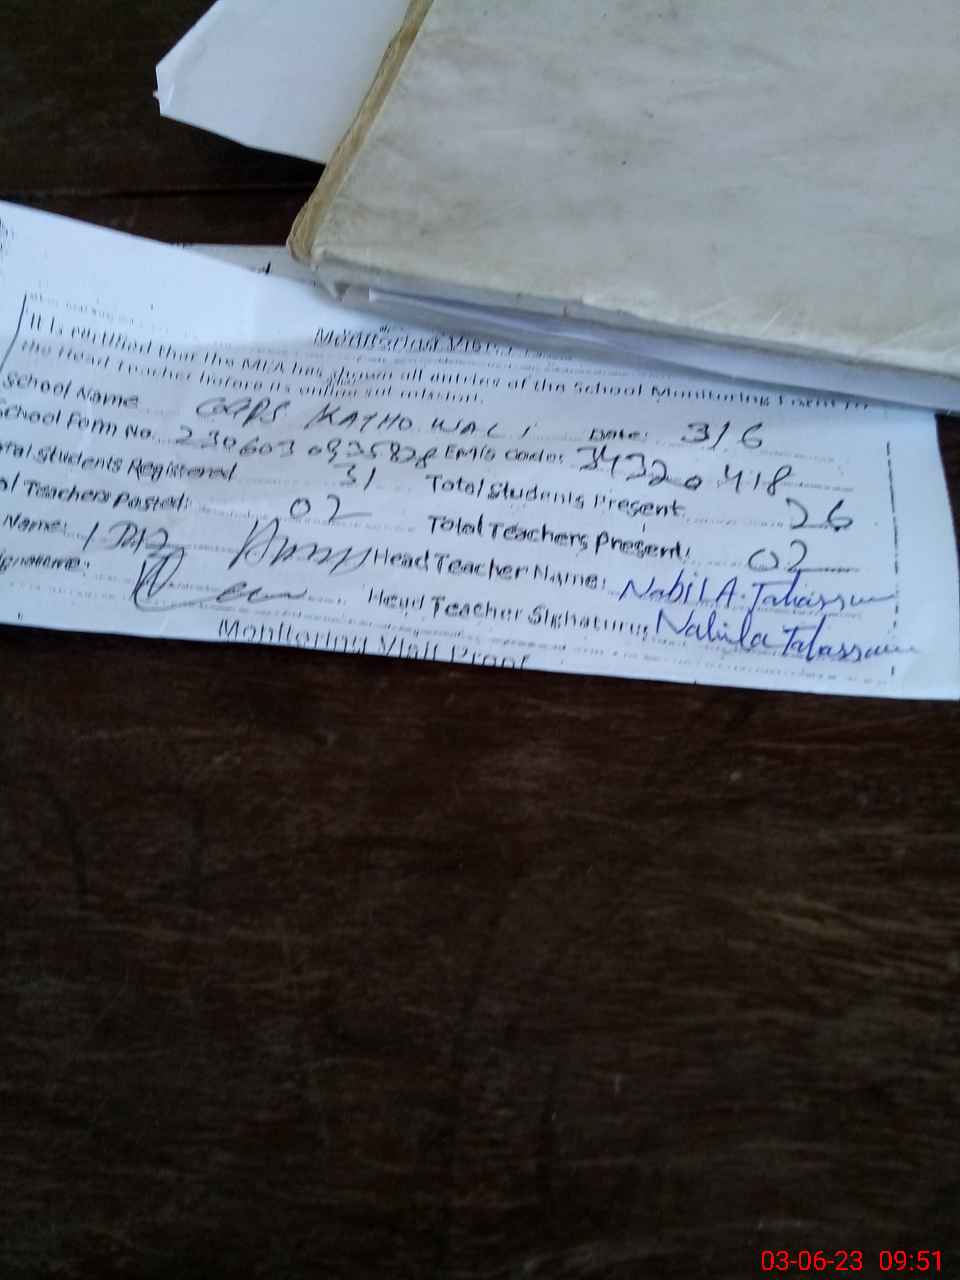 Monitoring Visit
It is certified that the MEA has shown all entries of the School Monitoring Form to
the Head Teacher before its online submission.
School Name GGPS KATHO WALI Date: 3/6
School Form No. 230603 EMIS Code: 34320418
Total Students Registered 31 Total Students Present 26
Teachers Posted: 02 Total Teachers Present: 02
Name: Head Teacher Name: NabilA Tabassum
Signature: Head Teacher Signature: Nabila Tabassum
Monitoring Visit Proof
03-06-23 09:51